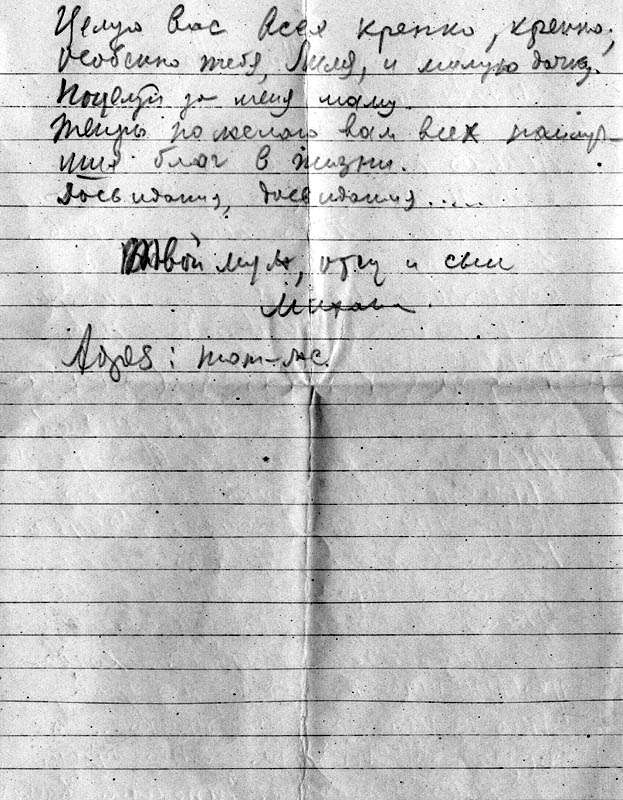 Целую вас всех крепко, крепко,
особенно тебя, Лиля, и милую дочку.
Поцелуй за меня маму.
Теперь пожелаю вам всех наилуч-
ших благ в жизни.
Досвидания, досвидания.....
Твой муж, отец и сын
Михаил
Адрес: тот-же.